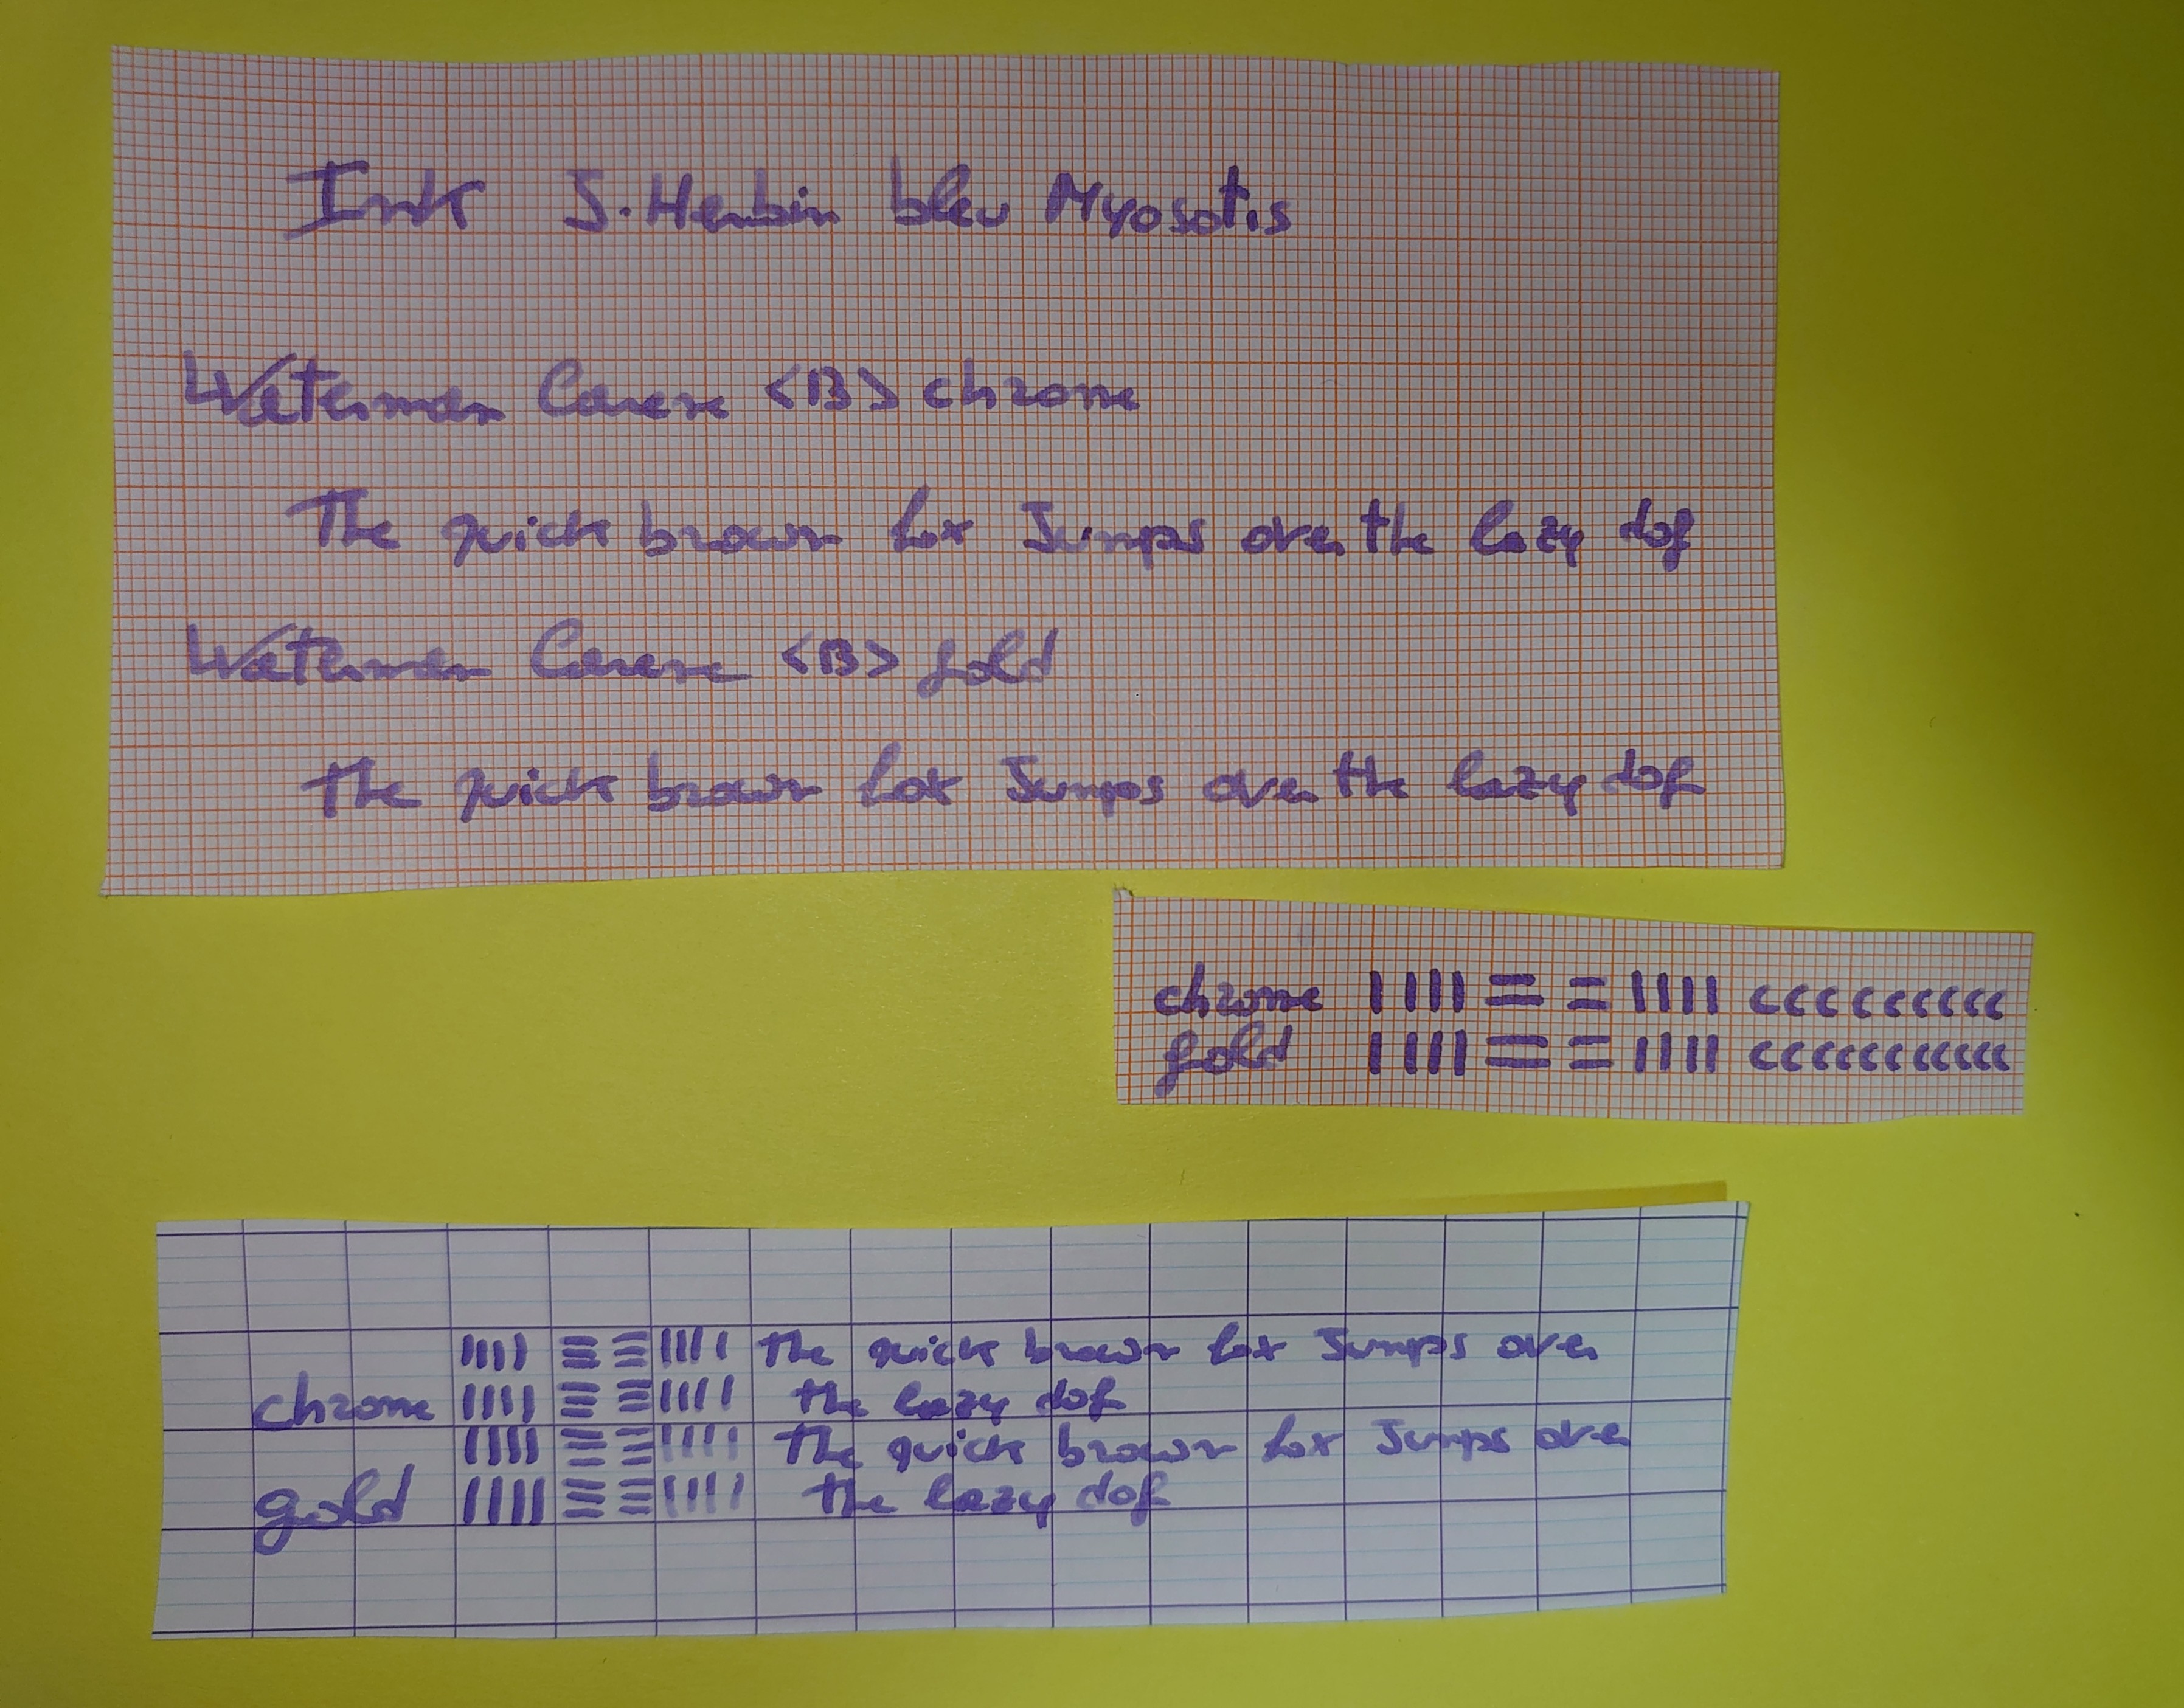 Ink J. Herbin bleu Myosotis
Waterman Carene <B> chrome
The quick brown fox Jumps over the lazy dog
Waterman Carene <B> gold
The quick brown fox Jumps over the lazy dog
chrome |||| = = |||| ccccccccc
gold |||| = = |||| ccccccccccc
|||| ≡ ≡ |||| The quick brown fox Jumps over
chrome |||| ≡ ≡ |||| the lazy dog
|||| ≡ ≡ |||| The quick brown fox Jumps over
gold |||| ≡ ≡ |||| the lazy dog